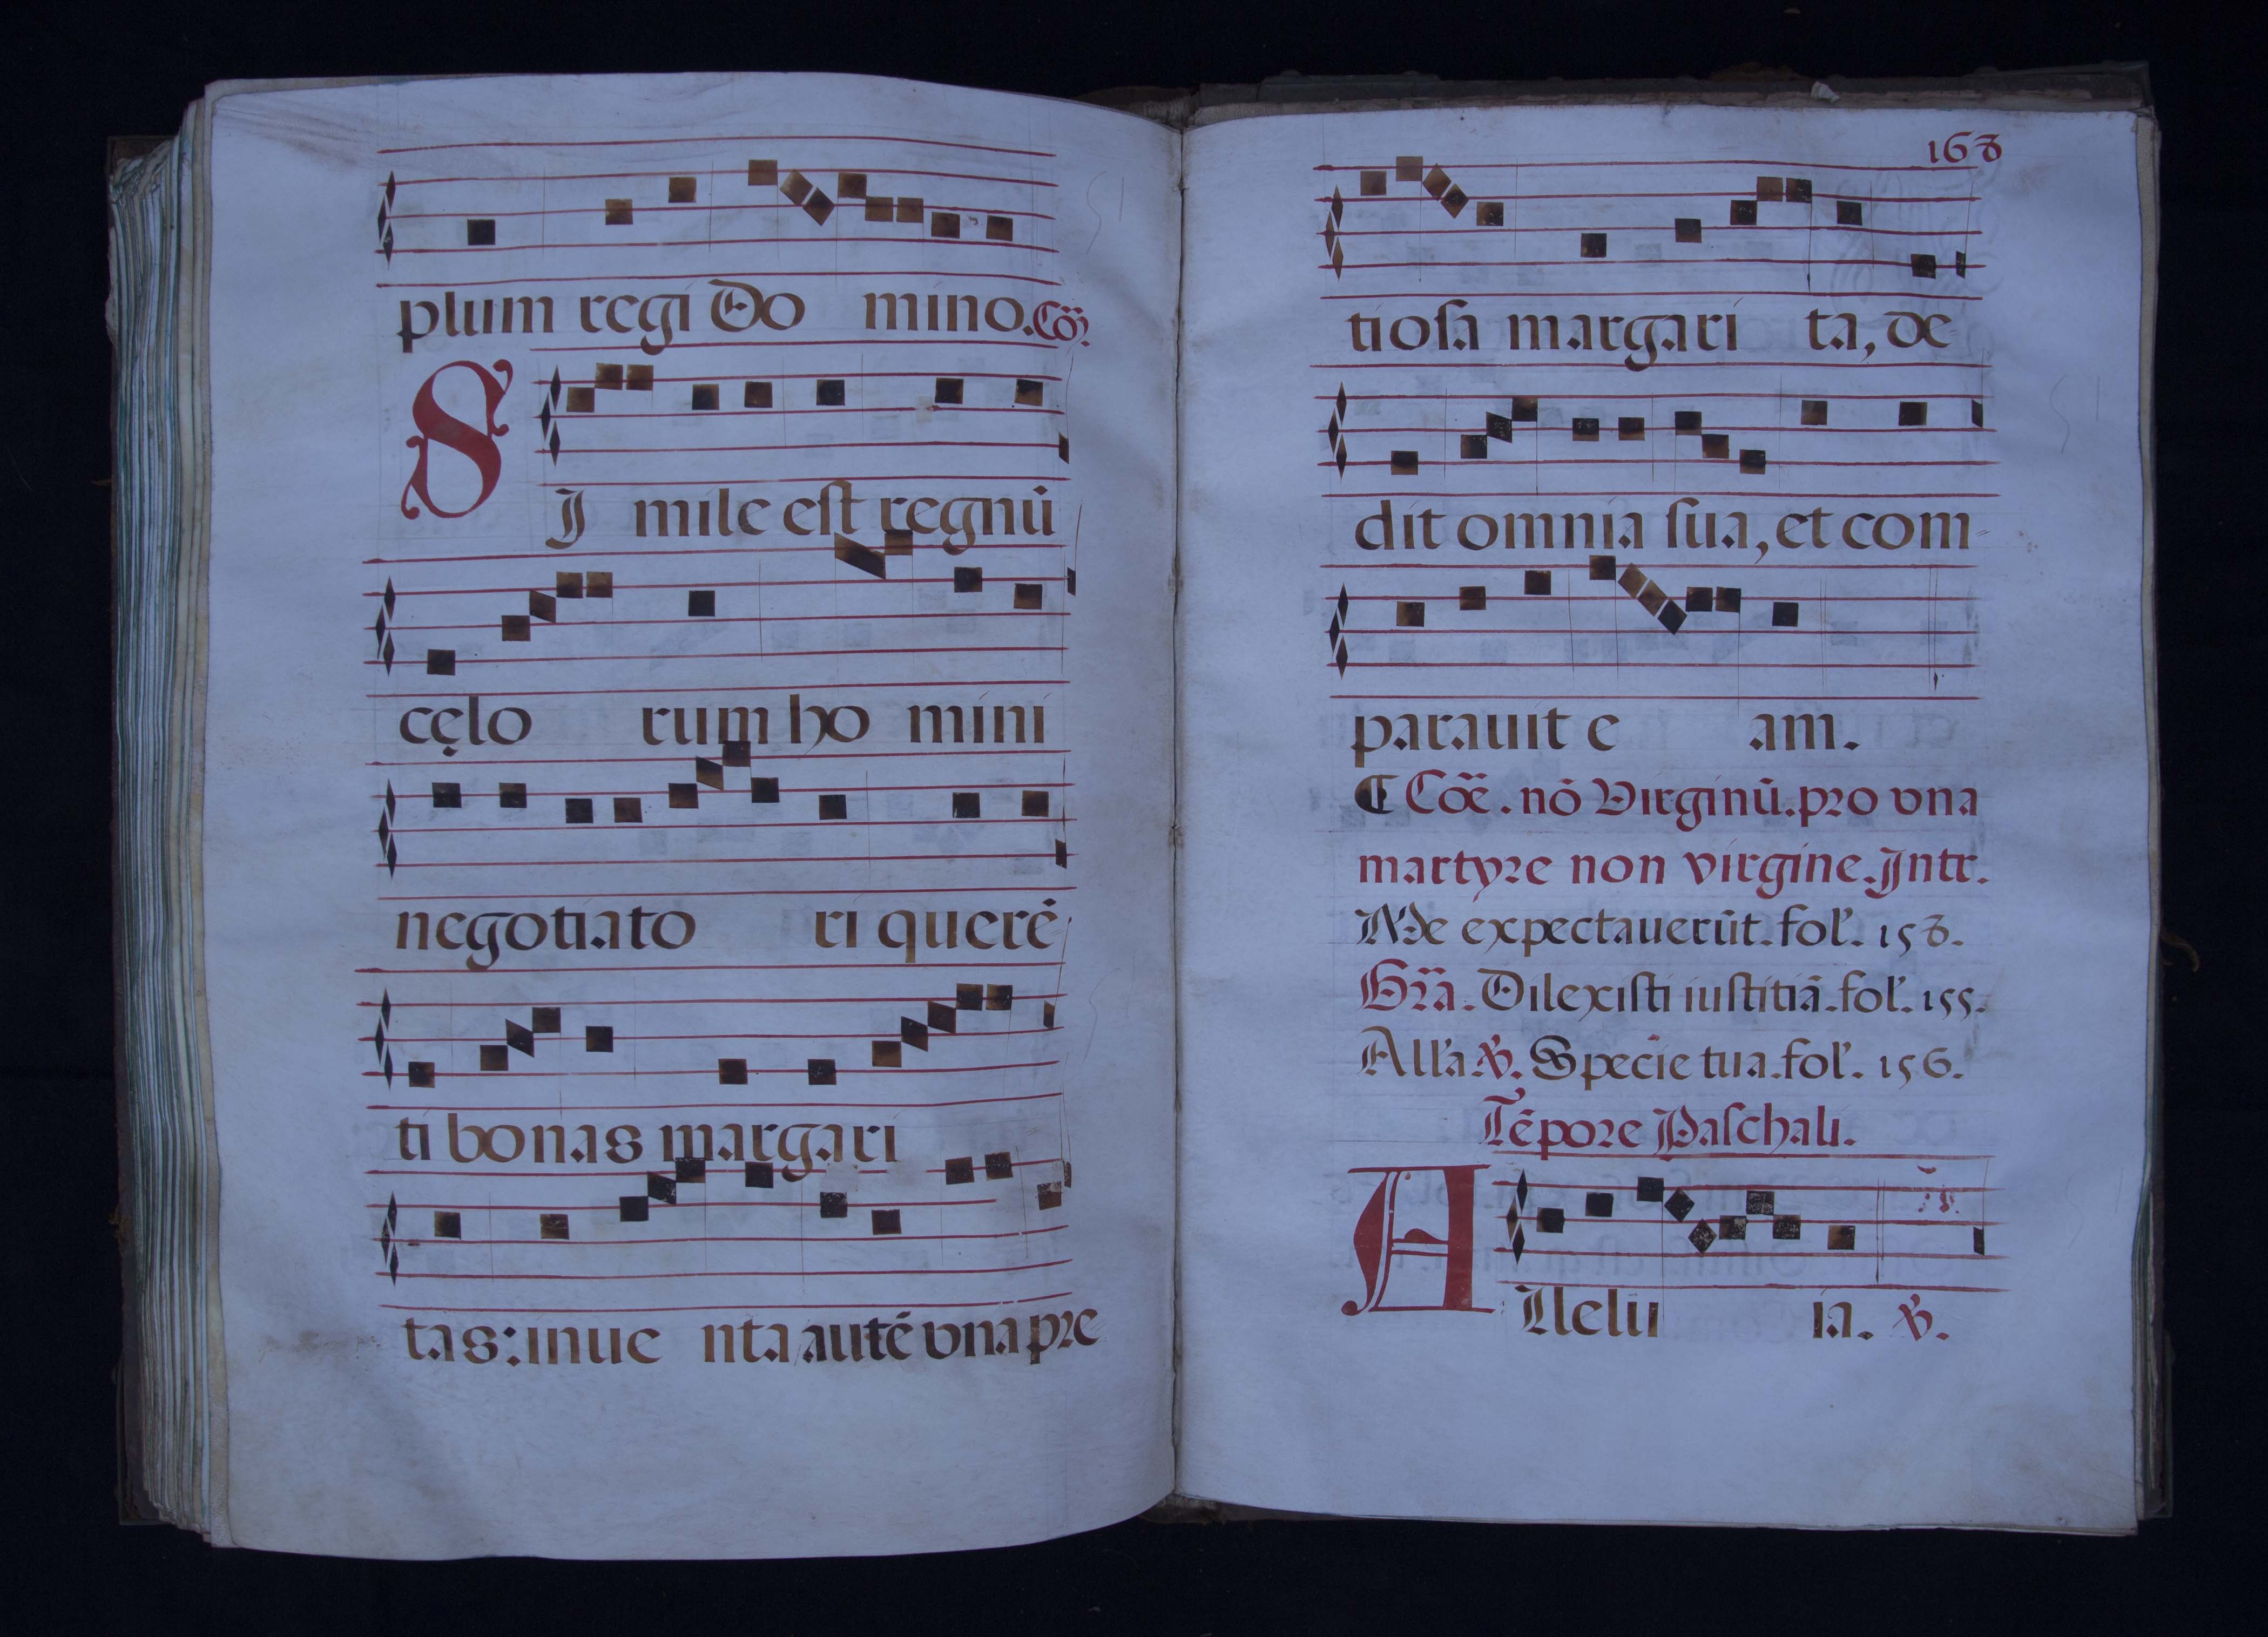 plum regi Do mino. Cõ2.
SJ mile est regnū
cęlo rum ho mini
negotiato ri querē
ti bonas margari
tas: inue nta autē vna pre
168
tiosa margari ta, de-
dit omnia sua, et com-
parauit e am.
¶ Cõe. nō Virginū. pro vna
martyre non virgine. Intr.
Me expectauerūt. fol. 158.
Gra. Dilexisti iustitiā. fol. 155.
Alla ℣. Specie tua. fol. 156.
Tēpore Paschali.
A Llelu ia. ℣.